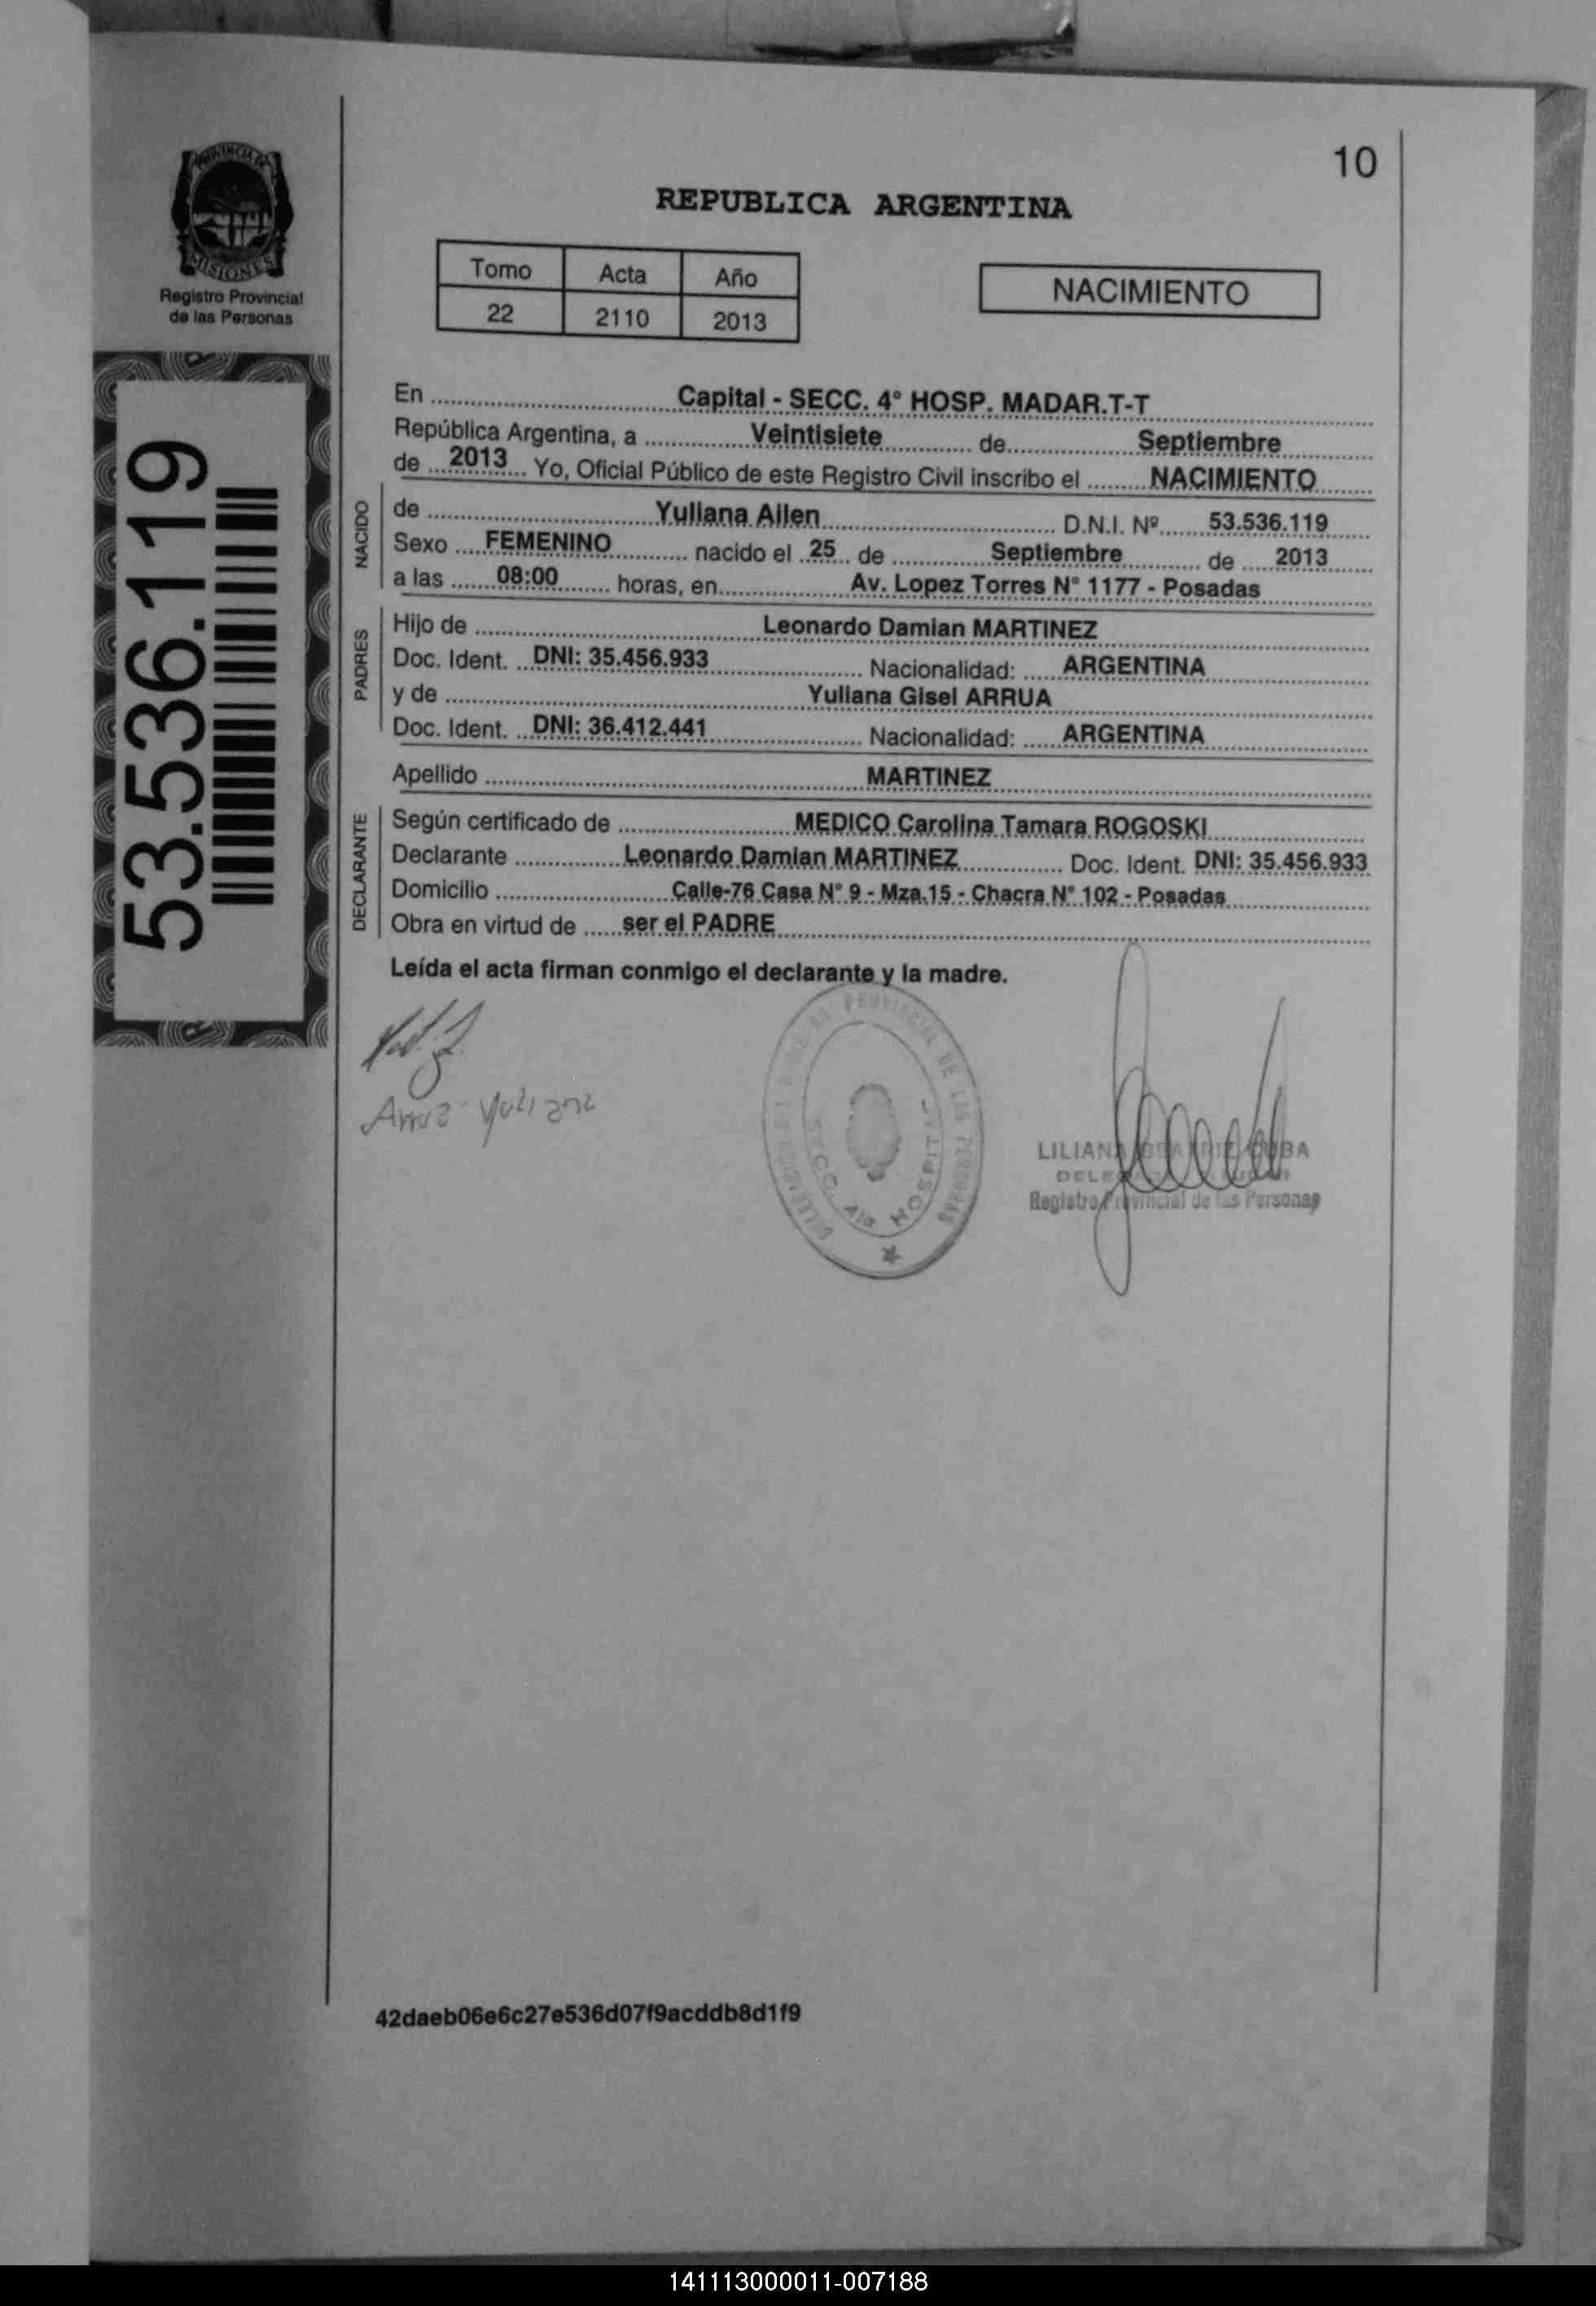 10
PROVINCIA DE
MISIONES
Registro Provincial
de las Personas
REPUBLICA ARGENTINA
Tomo Acta Año
22 2110 2013
NACIMIENTO
53.536.119
En Capital - SECC. 4° HOSP. MADAR.T-T
República Argentina, a Veintisiete de Septiembre
de 2013 Yo, Oficial Público de este Registro Civil inscribo el NACIMIENTO
NACIDO
de Yuliana Ailen D.N.I. Nº 53.536.119
Sexo FEMENINO nacido el 25 de Septiembre de 2013
a las 08:00 horas, en Av. Lopez Torres N° 1177 - Posadas
PADRES
Hijo de Leonardo Damian MARTINEZ
Doc. Ident. DNI: 35.456.933 Nacionalidad: ARGENTINA
y de Yuliana Gisel ARRUA
Doc. Ident. DNI: 36.412.441 Nacionalidad: ARGENTINA
Apellido MARTINEZ
DECLARANTE
Según certificado de MEDICO Carolina Tamara ROGOSKI
Declarante Leonardo Damian MARTINEZ Doc. Ident. DNI: 35.456.933
Domicilio Calle-76 Casa N° 9 - Mza.15 - Chacra N° 102 - Posadas
Obra en virtud de ser el PADRE
Leída el acta firman conmigo el declarante y la madre.
Arrua Yuliana
PROVINCIAL DE LAS PERSONAS
SECC. 4ta HOSPITAL
LILIANA
Registro Provincial de las Personas
42daeb06e6c27e536d07f9acddb8d1f9
141113000011-007188